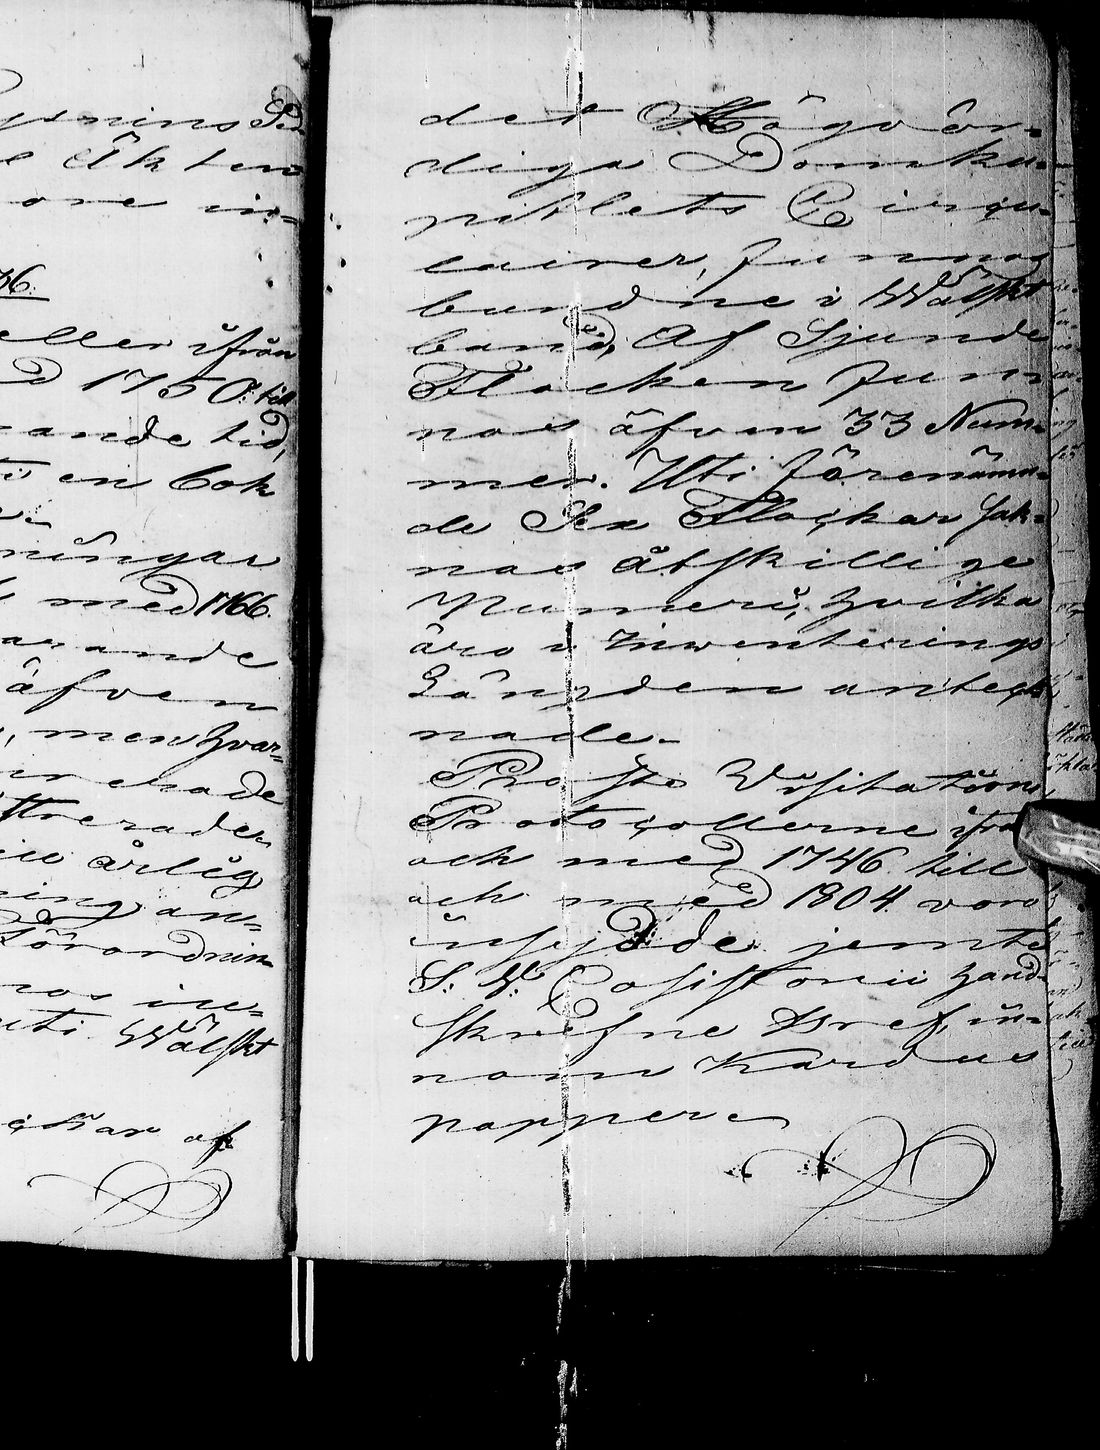 ysnins Pu
e Äkten
ore in=
36.
eller ifrån
d 1750. till
ande tid,
ti en bok
ningar
med 1766.
arande
äfven
, men hvar=
nerade
strerade,
ill årlig
ning an=
Förordnin
nas in=
uti Wälskt
ckar af
det Högvör=
diga Domka=
pitlets Circu=
lairer, funnos
bundne i Wälskt
band, Af Sjunde
Flocken fun=
nos äfven 33 Num=
mer. Uti förenämn=
de Sex Flockar sak=
nas åtskillige
Numeri, hvilka
äro i Inventerings
Längden anteck=
nade.
Prosts Visitations
Protocollerne ifrån
och med 1746 till
och med 1804. voro
insydde jemte
S: V: Cosistorii hand=
skrefne Bref, in=
nom Kardus
pappere